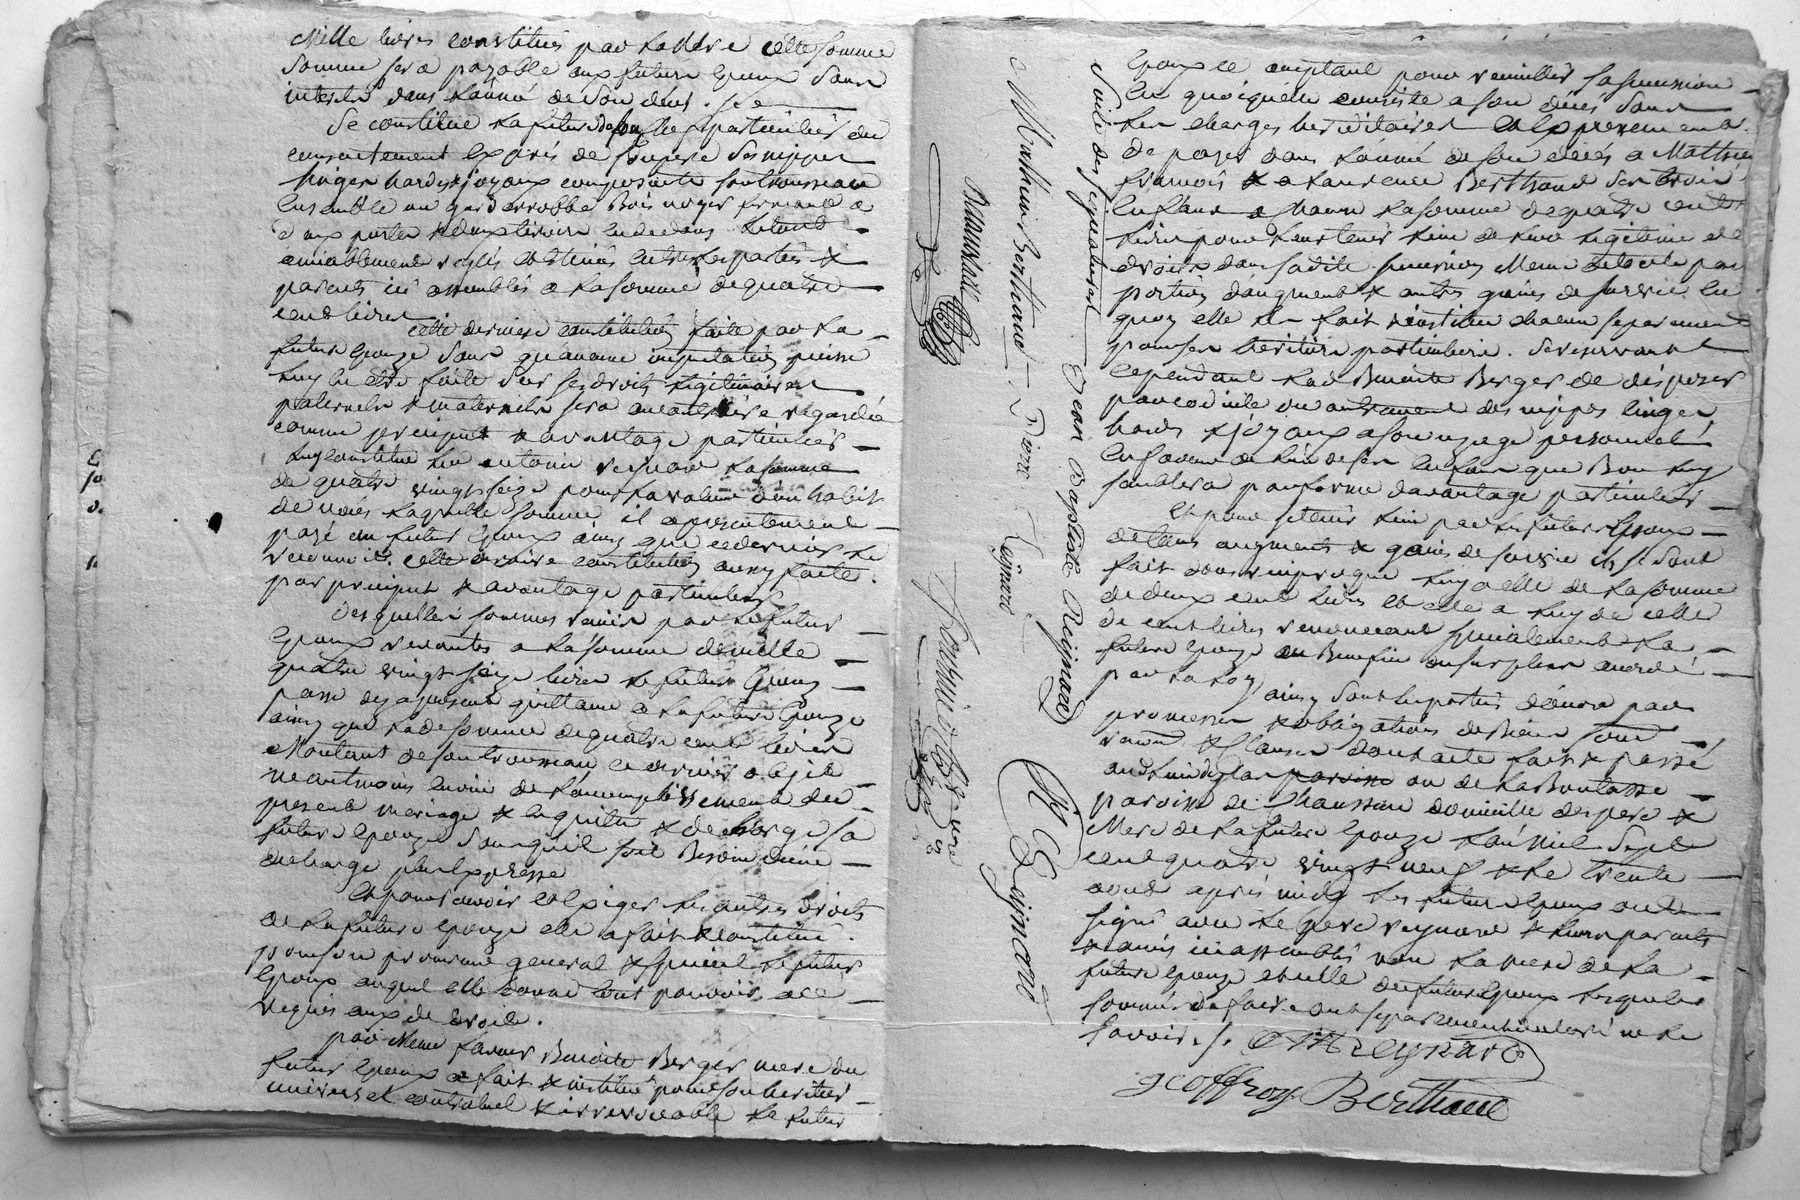 Mille livres constitués par la Mere cette somme
somme sera payable aux futurs Epoux sans
interets dans l'année de son deces.
Se constitue la future de son chef particulier du
consentement Exprés de son pere ses nippes
linges hardes & joyaux composants son trousseau
Ensemble un garderrobbe Bois noyer fermant a
deux portes & deux tiroirs en dedans le tout
amiablement reglés et estimés entre les parties &
parents ici assemblés a la somme de quatre
cent livres
cette derniere constitution faite par la
future Epouze sans qu'aucune imputation puisse
luy en etre faite sur ses droits legitimaires
paternels & maternels sera au contraire regardée
comme preciput & avantage particulier
luy constitue antoine reynard la somme
de quatre vingt seize pour la valeur d'un habit
de noces laquelle somme il a presentement
payé au futur Epoux ainsy que ce dernier le
reconnoit. cette derniere constitution aussy faite
par preciput & avantage particulier
Desquelles sommes reunies par le futur
Epoux revenantes a la somme de mille
quatre vingt seize livres le futur Epoux
passe des a present quittance a la future Epouze
ainsy que de la somme de quatre cent livres
Montant de son trousseau ce dernier objet
neantmoins en vüe de l'accomplissement du
present mariage & en quitte & decharge la
future epouze sans qu'il soit Besoin d'une
decharge plus Expresse
Et pour avoir et Exiger les autres droits
de la future epouze elle a fait & constitué
pour son procureur general & special le futur
Epoux auquel elle donne tout pouvoir a ce
requis aux de droits.
par Meme faveur Benoite Berger mere du
futur Epoux a fait & institué pour son heritier
universel contractuel & irrevocable le futur
Epoux ce acceptant pour recueillir sa succession
en quoiqu'elle consiste a son deces sous
les charges hereditaires et Expressement
de payer dans l'année de son décés a Mathieu
francois & a Laurence Berthaud ses trois
Enfans a chacun la somme de quatre cent
livres pour leur tenir lieu de leur legitime et
droits dans sa dite succession Meme de toute
portion d'augment & autres gains de survie en
quoy elle les fait & institue chacun separement
pour ses heritiers particuliers. se reservant
cependant lad Benoite Berger de disposer
par codicile ou autrement des nippes linges
hardes & joyaux a son uzage personnel
en faveur de l'un de ses enfans que Bon luy
semblera par forme d'avantage particulier
Et pour se tenir lieu par les futurs Epoux
de tous augments & gains de survie ils se sont
fait dons reciproques luy a elle de la somme
de deux cent livres et elle a luy de celle
de cent livres renoncant specialement la
future Epouze au Benefice du surplus accordé
par la loy ainsy sont les parties d'accord par
promesses & obligations de biens sous
renon & clauses dont acte fait & passé
au de la Bontasse
paroisse de Chaussan domicille des pere &
Mere de la future Epouze l'an Mil Sept
cent quatre vingt neuf & le trente
aout aprés midy les futurs Epoux ont
signé avec le pere reynard & leurs parents
& amis ici assemblés non la mere de la
future Epouze et celle du futur Epoux lesquelles
sommées de faire ont separement declaré ne le
savoir.
Reynard
geoffroy Berthaud
Suite des signatures
Jean Baptiste Reignard
Mathieu Berthaud
Pierre Reignard
Reignard